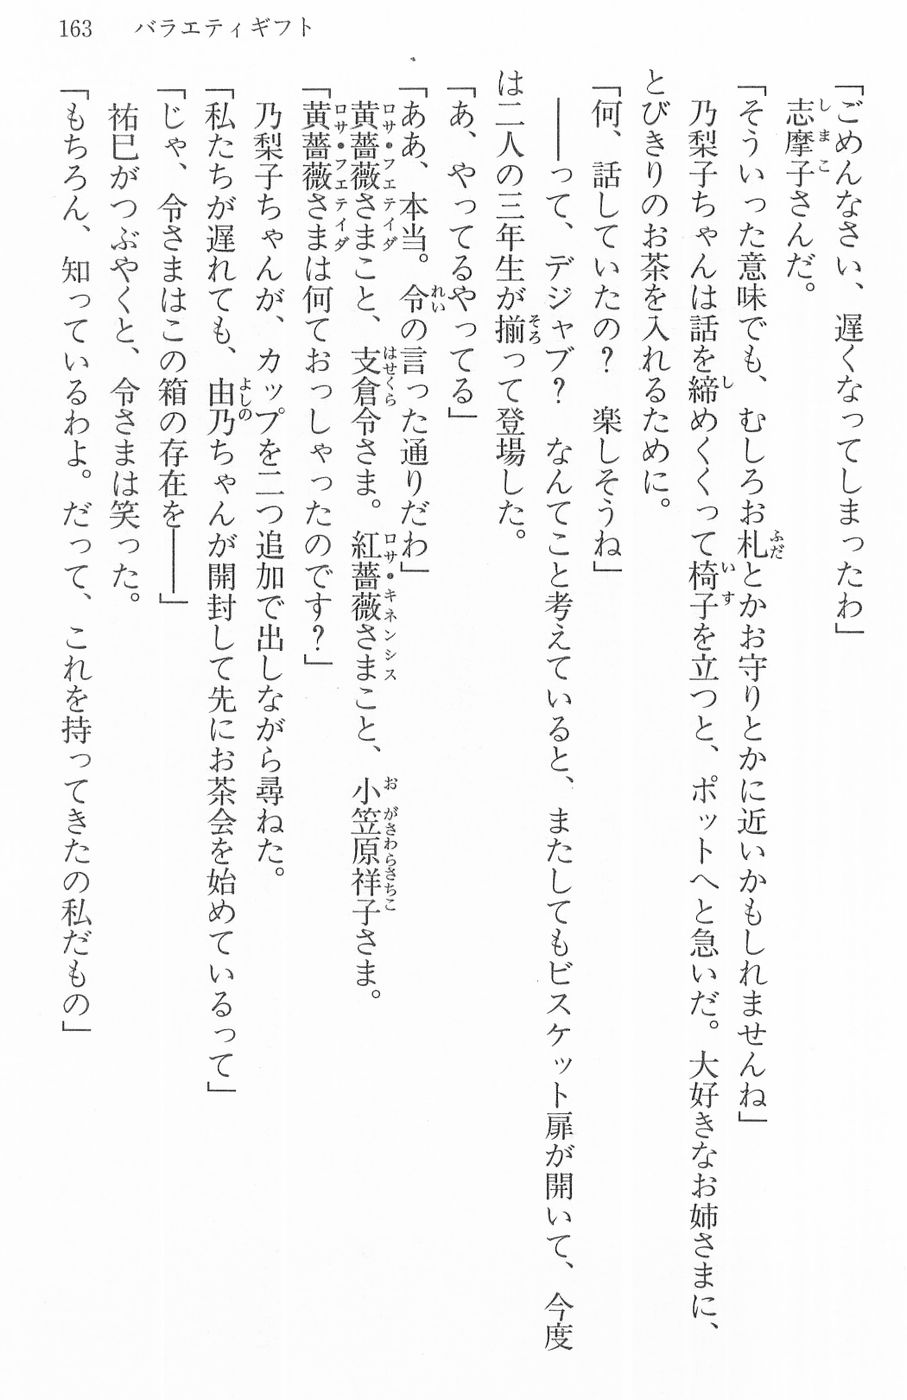 163　バラエティギフト
「ごめんなさい、遅くなってしまったわ」
志摩子さんだ。
「そういった意味でも、むしろお札とかお守りとかに近いかもしれませんね」
乃梨子ちゃんは話を締めくくって椅子を立つと、ポットへと急いだ。大好きなお姉さまに、
とびきりのお茶を入れるために。
「何、話していたの？　楽しそうね」
――って、デジャブ？　なんてこと考えていると、またしてもビスケット扉が開いて、今度
は二人の三年生が揃って登場した。
「あ、やってるやってる」
「ああ、本当。令の言った通りだわ」
黄薔薇さまこと、支倉令さま。紅薔薇さまこと、小笠原祥子さま。
「黄薔薇さまは何ておっしゃったのです？」
乃梨子ちゃんが、カップを二つ追加で出しながら尋ねた。
「私たちが遅れても、由乃ちゃんが開封して先にお茶会を始めているって」
「じゃ、令さまはこの箱の存在を――」
祐巳がつぶやくと、令さまは笑った。
「もちろん、知っているわよ。だって、これを持ってきたの私だもの」